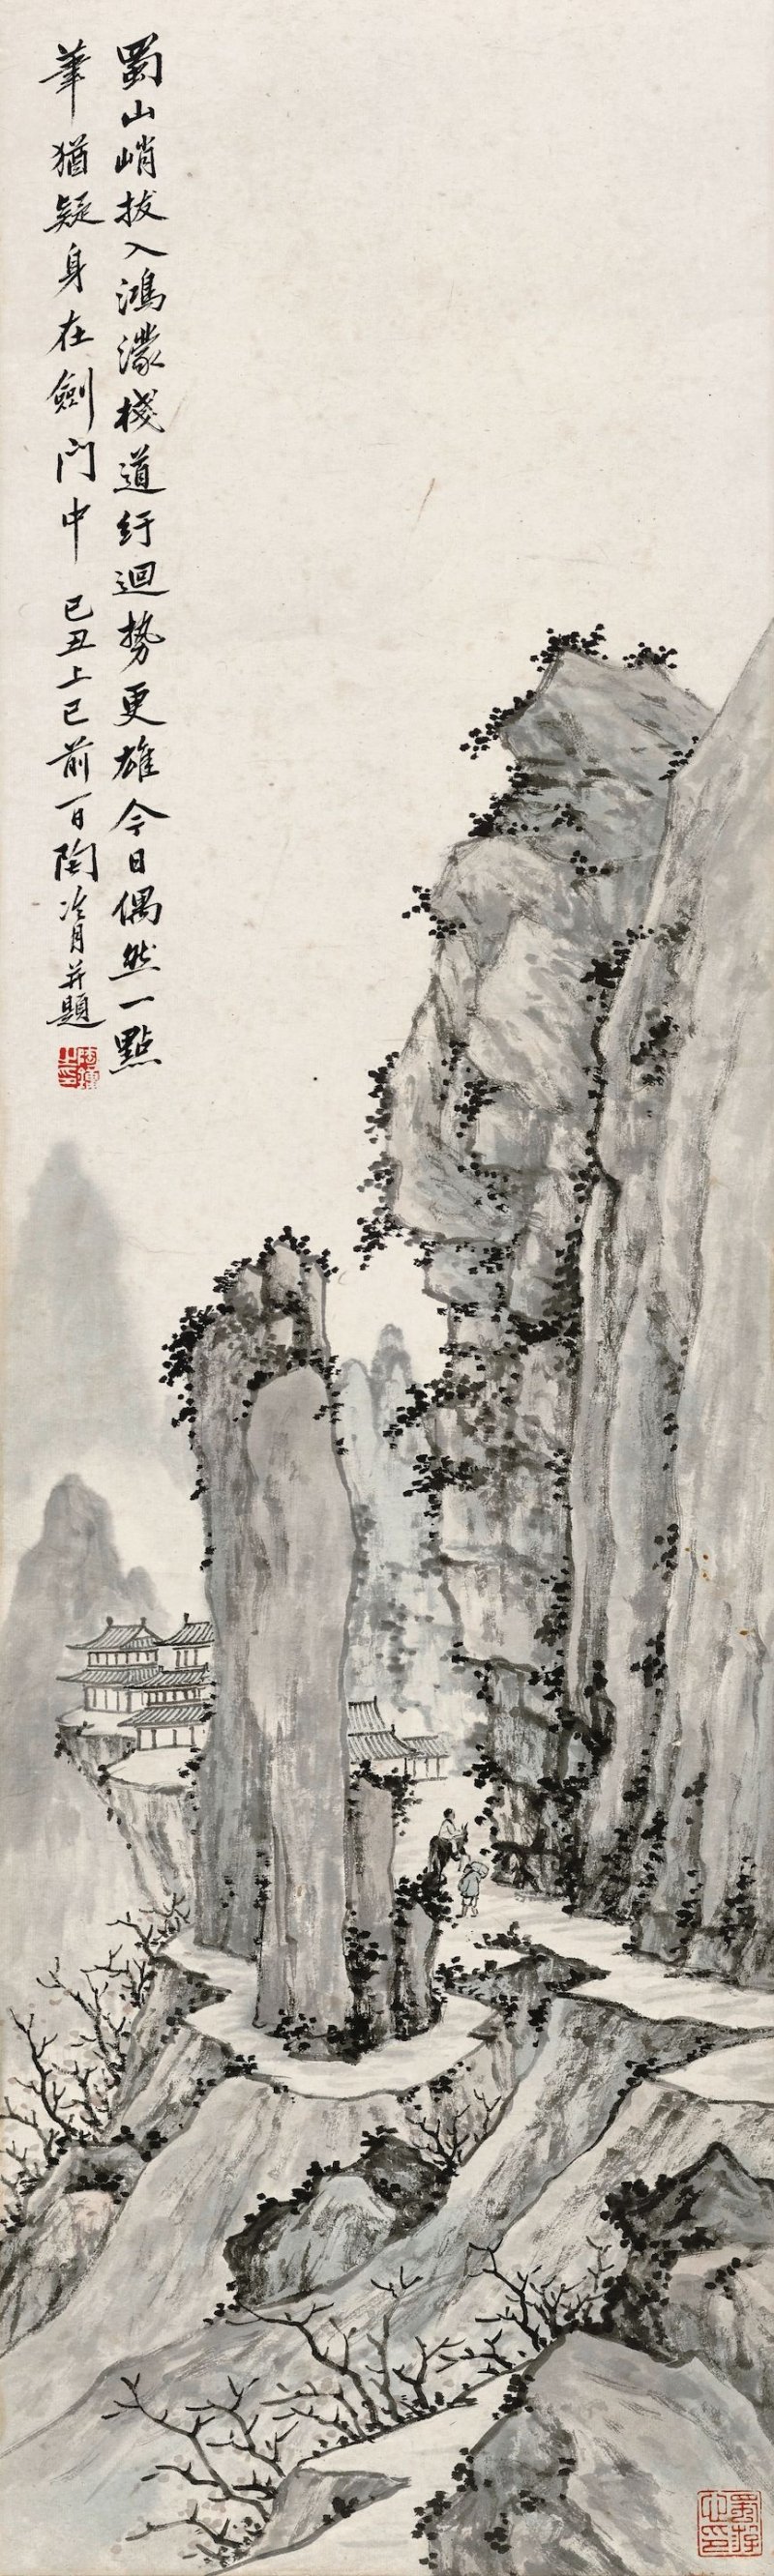 蜀山峭拔入鴻濛棧道紆迴勢更雄今日偶然一點
筆猶疑身在劍門中 己丑上巳前一日陶冷月并題